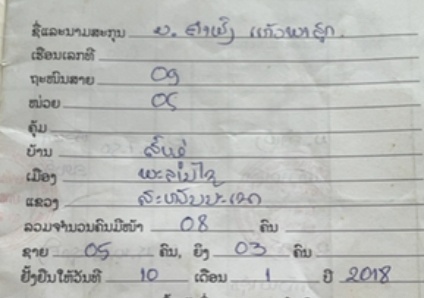 ຊື່ແລະນາມສະກຸນ ທ. ຄຳເຜີຍ ແກ້ວພາລຸກ
ເຮືອນເລກທີ
ຖະໜົນສາຍ 09
ໜ່ວຍ 05
ຄຸ້ມ
ບ້ານ
ເມືອງ ພະລານໄຊ
ແຂວງ ສະຫວັນນະເຂດ
ລວມຈຳນວນຄົນມີໜ້າ 08 ຄົນ
ຊາຍ 05 ຄົນ, ຍິງ 03 ຄົນ
ຢັ້ງຢືນໃຫ້ວັນທີ 10 ເດືອນ 1 ປີ 2018